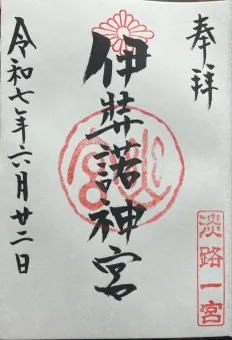 奉拝
伊弉諾神宮
令和七年六月廿二日
淡路一宮